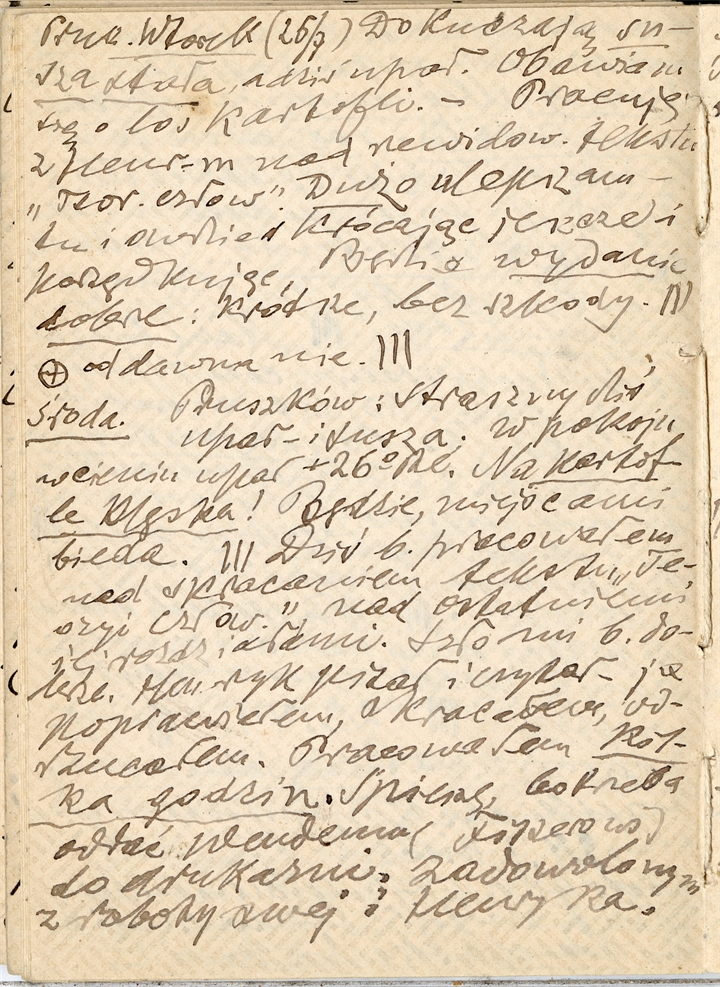 Prusz. Wtorek (26/7) Dokuczają su-
sza stała, a dziś upał. Obawiam
się o los kartofli. – Pracuję
z Henr-m nad rewidow. tekstu
"Teor. człow". Dużo ulepszam –
tu i ówdzie skracając jeszcze i
porządkując. Będzie wydanie
dobre: krótsze, bez szkody. |||
⊕ oddawna nie. |||
Środa. Pruszków: straszny dziś
upał – i susza. W pokoju
w cieniu upał +26° Re. Na kartof-
le klęska! Będzie, miejscami
bieda. ||| Dziś b. pracowałem
nad skracaniem tekstu "Te-
oryi człow.", nad ostatniemi
jej rozdziałami. Szło mi b. do-
brze. Henryk pisał i czytał – ja
poprawiałem, skracałem, od-
rzucałem. Pracowałem kil-
ka godzin. Spieszę, bo trzeba
oddać
do drukarni. Zadowolonym
z roboty swej i Henryka.